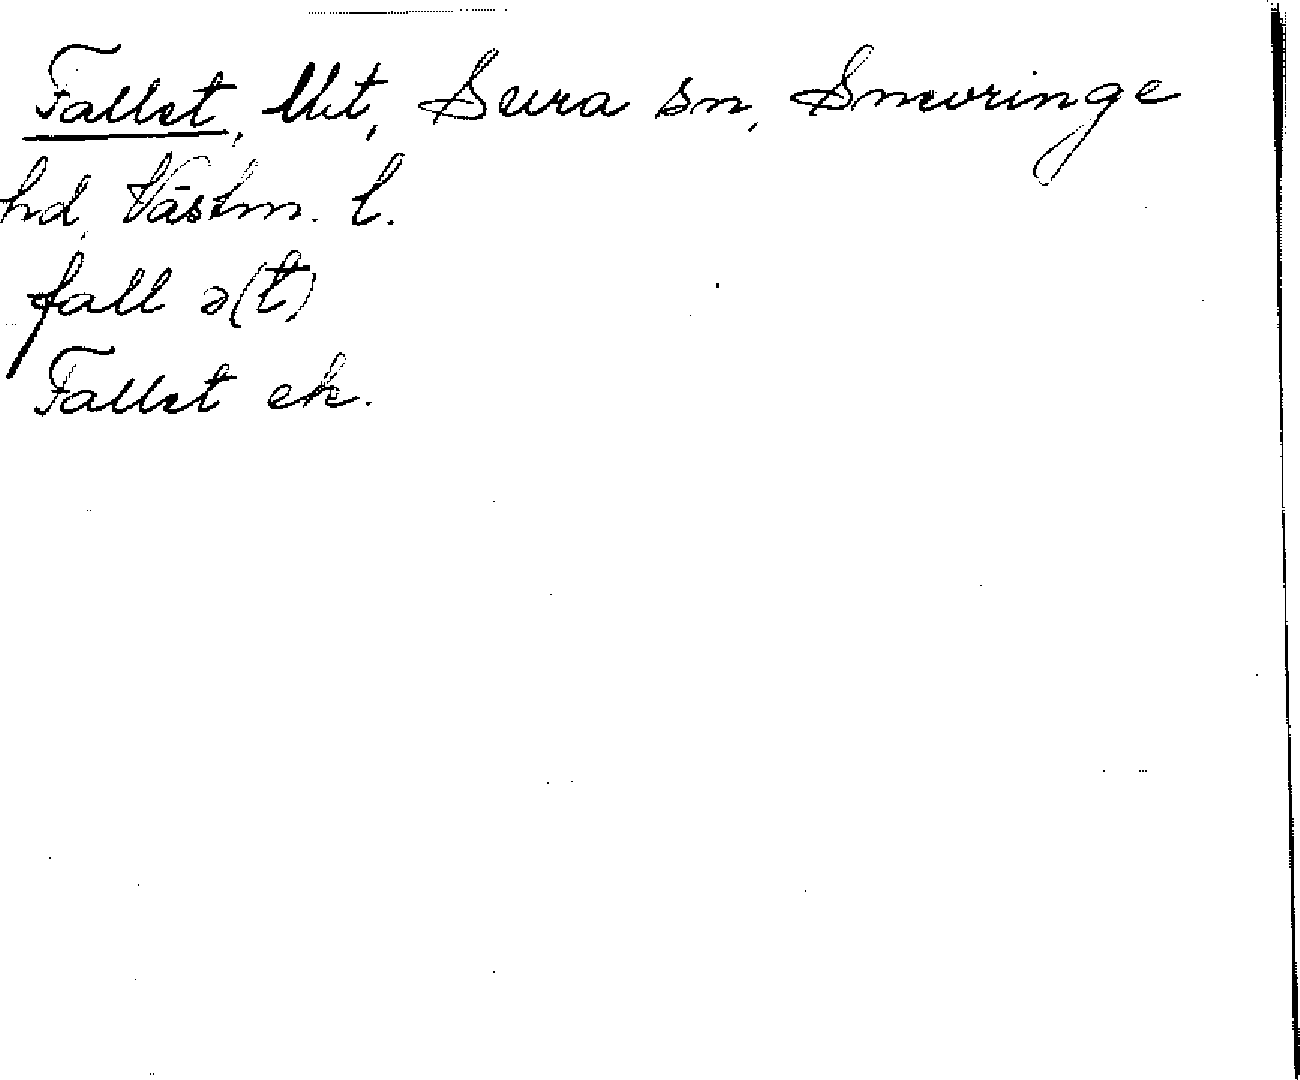 Fallet, Utt, Sura sn, Snevringe
hd, Västm. l.
fall ə(t)
Fallet ek.